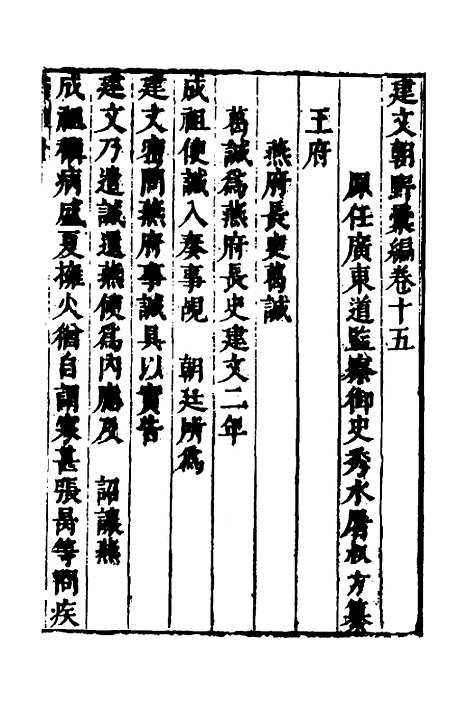 建文朝野彙編卷十五
原任廣東道監察御史秀水屠叔方纂
王府
燕府長史葛誠
葛誠爲燕府長史建文二年
成祖使誠入奏事覘 朝廷所爲
建文密問燕府事誠具以實告
建文乃遣誠還燕使爲內應及 詔讓燕
成祖稱病盛夏擁火猶自謂寒甚張昺等問疾